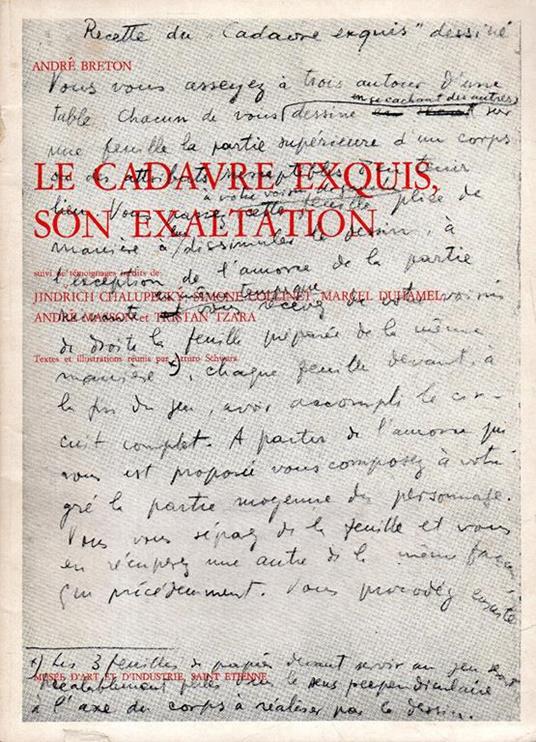 Recette du "Cadavre exquis" dessiné
ANDRÉ BRETON
Vous vous asseyez à trois autour d'une
en se cachant des autres
table. Chacun de vous dessine sur
une feuille la partie supérieure d'un corps
ou des attributs susceptibles d'en tenir
LE CADAVRE EXQUIS,
à votre voisin
lieu. Vous passez cette feuille, pliée de
SON EXALTATION
manière à dissimuler le dessin, à
suivi de témoignages inédits de
l'exception de l'amorce de la partie
JINDRICH CHALUPECKÝ SIMONE COLLINET MARCEL DUHAMEL
en même temps que
vous recevez de votre voisin
ANDRÉ MASSON et TRISTAN TZARA
de droite la feuille préparée de la même
Textes et illustrations réunis par Arturo Schwarz
manière*), chaque feuille devant, à
la fin du jeu, avoir accompli le cir-
cuit complet. A partir de l'amorce qui
vous est proposée vous composez à votre
gré la partie moyenne du personnage.
Vous vous séparez de la feuille et vous
en récupérez une autre de la même façon
que précédemment. Vous procédez ensuite
*) Les 3 feuilles de papier devant servir au jeu sont
MUSÉE D'ART ET D'INDUSTRIE, SAINT ETIENNE
préalablement pliées dans le sens perpendiculaire
à l'axe du corps à réaliser par le dessin.